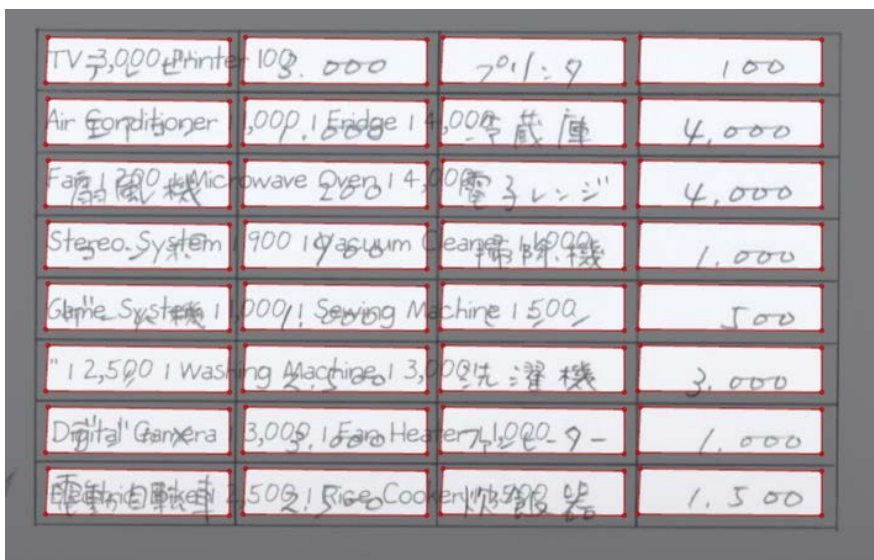 TV 3,000 Printer 100
3.000 プリンタ 100
Air Conditioner | 1,000 | Fridge | 4,000
1.000 冷蔵庫 4.000
Fan | 200 | Microwave Oven | 4,000
扇風機 200 電子レンジ 4.000
Stereo System | 900 | Vacuum Cleaner | 1,000
900 掃除機 1.000
Game System | 1,000 | Sewing Machine | 500
1.000 500
" | 2,500 | Washing Machine | 3,000
2.500 洗濯機 3.000
Digital Camera | 3,000 | Fan Heater | 1,000
3.000 ファンヒーター 1.000
2,500 | Rice Cooker
電動自転車 2.500 炊飯器 1.500